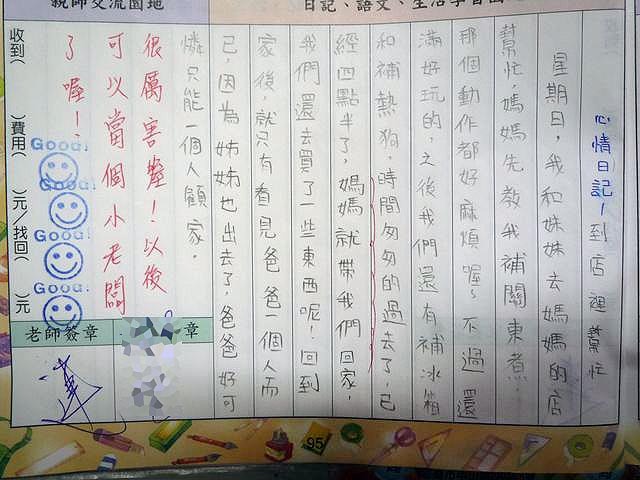 親師交流園地
日記、語文、生活學習
心情日記/到店裡幫忙
星期日,我和妹妹去媽媽的店
幫忙,媽媽先教我補關東煮,
那個動作都好麻煩喔~不過還
滿好玩的,之後我們還有補冰箱
和補熱狗,時間匆匆的過去了,已
經四點半了,媽媽就帶我們回家,
我們還去買了一些東西呢!回到
家後,就只有看見爸爸一個人而
已,因為姊姊也出去了,爸爸好可
憐只能一個人顧家。
很厲害喔!以後
可以當個小老闆
了喔!
收到( )費用( )元/找回( )元
Good!
Good!
Good!
Good!
老師簽章
章
95